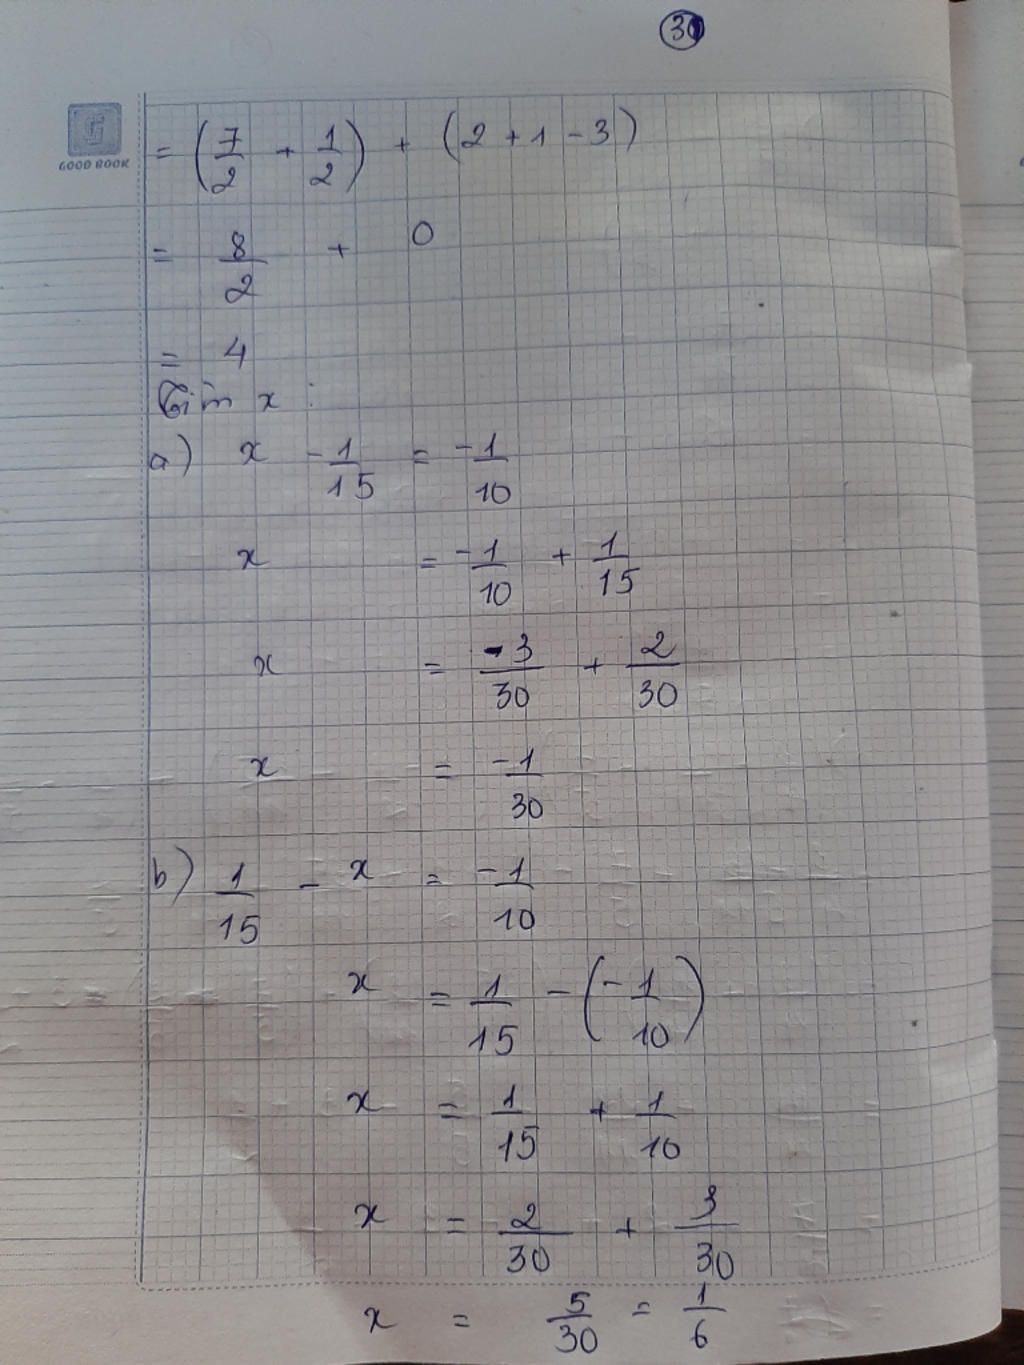 30
GOOD BOOK
= (7/2 + 1/2) + (2 + 1 - 3)
= 8/2 + 0
= 4
Tìm x :
a) x - 1/15 = -1/10
x = -1/10 + 1/15
x = -3/30 + 2/30
x = -1/30
b) 1/15 - x = -1/10
x = 1/15 - (-1/10)
x = 1/15 + 1/10
x = 2/30 + 3/30
x = 5/30 = 1/6